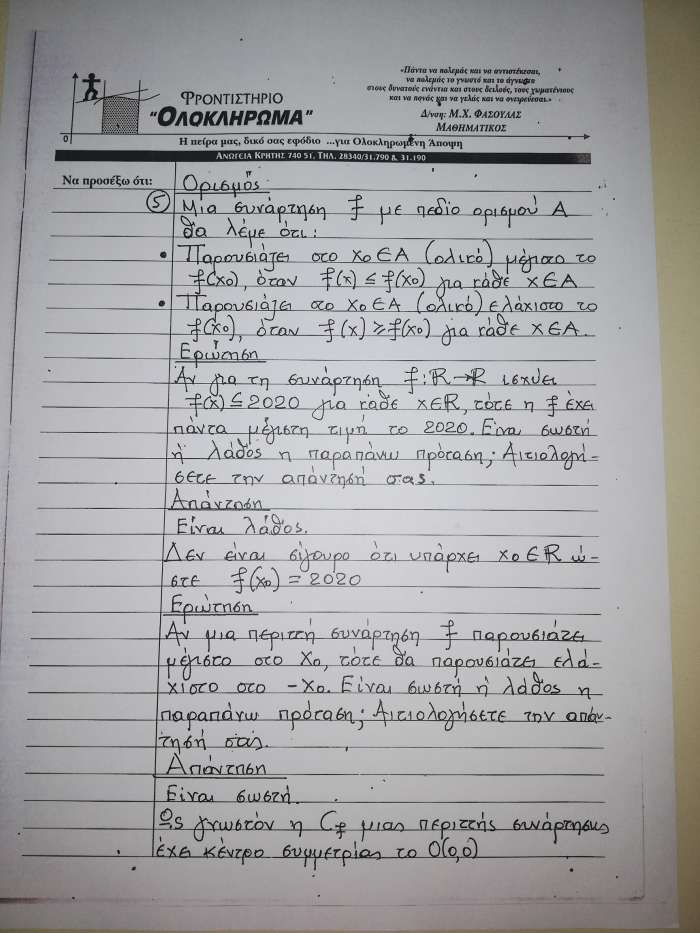 «Πάντα να πολεμάς και να αντιστέκεσαι,
να πολεμάς το γνωστό και το άγνωστο
στους δυνατούς ενάντια και στους δειλούς, τους χωματένιους
και να πονάς και να γελάς και να ονειρεύεσαι.»
ΦΡΟΝΤΙΣΤΗΡΙΟ
"ΟΛΟΚΛΗΡΩΜΑ"
Δ/νση: Μ.Χ. ΦΑΣΟΥΛΑΣ
ΜΑΘΗΜΑΤΙΚΟΣ
0
Η πείρα μας, δικό σας εφόδιο ...για Ολοκληρωμένη Άποψη
ΑΝΩΓΕΙΑ ΚΡΗΤΗΣ 740 51, ΤΗΛ. 28340/31.790 & 31.190
Να προσέξω ότι:
Ορισμός:
5 Μια συνάρτηση f με πεδίο ορισμού Α
θα λέμε ότι:
• Παρουσιάζει στο x₀∈A (ολικό) μέγιστο το
f(x₀), όταν f(x) ≤ f(x₀) για κάθε x∈A
• Παρουσιάζει στο x₀∈A (ολικό) ελάχιστο το
f(x₀), όταν f(x) ≥ f(x₀) για κάθε x∈A.
Ερώτηση
Αν για τη συνάρτηση f:ℝ→ℝ ισχύει
f(x) ≤ 2020 για κάθε x∈ℝ, τότε η f έχει
πάντα μέγιστη τιμή το 2020. Είναι σωστή
ή λάθος η παραπάνω πρόταση; Αιτιολογή-
σετε την απάντησή σας.
Απάντηση
Είναι λάθος.
Δεν είναι σίγουρο ότι υπάρχει x₀∈ℝ ώ-
στε f(x₀) = 2020
Ερώτηση
Αν μια περιττή συνάρτηση f παρουσιάζει
μέγιστο στο x₀, τότε θα παρουσιάζει ελά-
χιστο στο -x₀. Είναι σωστή ή λάθος η
παραπάνω πρόταση; Αιτιολογήσετε την απάν-
τησή σας.
Απάντηση
Είναι σωστή.
Ως γνωστόν η Cf μιας περιττής συνάρτησης
έχει κέντρο συμμετρίας το Ο(0,0)